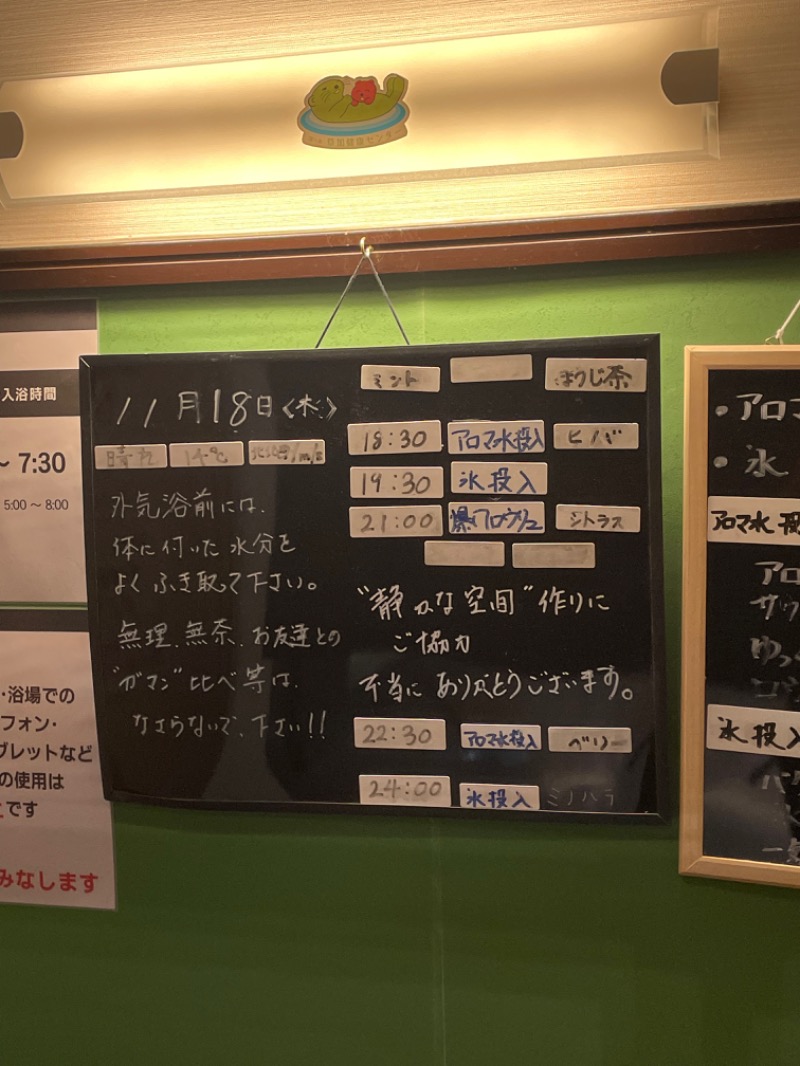 入浴時間
～ 7:30
5:00～8:00
・浴場での
フォン・
ブレットなど
の使用は
です
みなします
11月18日〈木〉
晴れ
14℃
外気浴前には、
体に付いた水分を
よくふき取って下さい。
無理、無茶、お友達との
"ガマン"比べ等は、
なさらないで、下さい!!
ミント
ほうじ茶
18:30 アロマ水投入 ヒバ
19:30 氷投入
21:00 爆アロウリュ シトラス
"静かな空間"作りに
ご協力
本当にありがとうございます。
22:30 アロマ水投入 ベリー
24:00 氷投入 ミノハラ
・アロマ
・氷
アロマ水投
アロ
サウ
ゆっく
氷投入